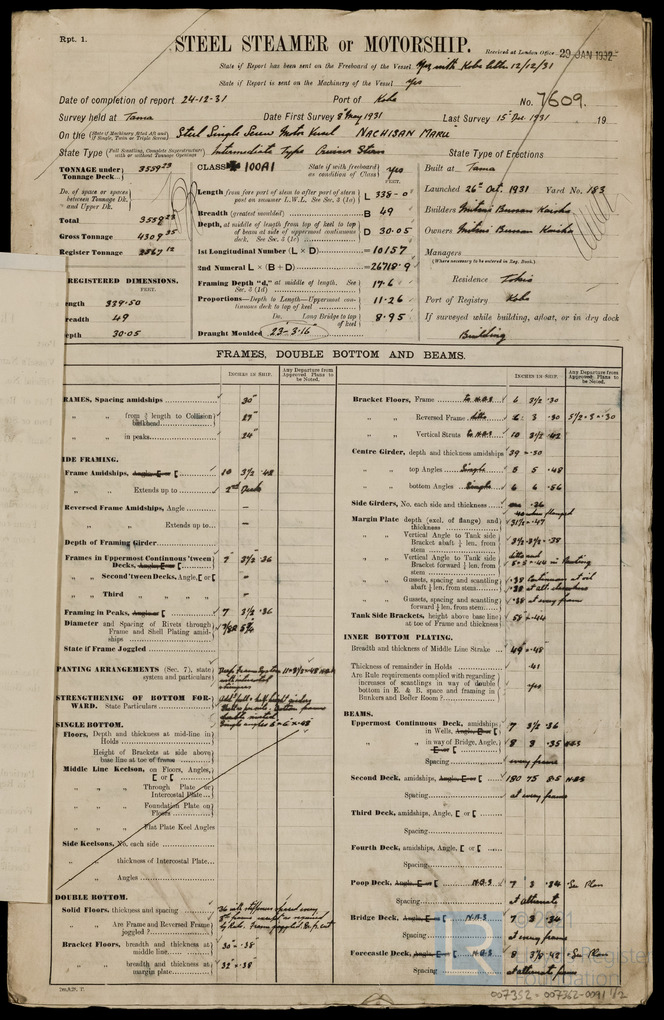 Rpt. 1.
STEEL STEAMER OR MOTORSHIP.
Received at London Office 29 JAN 1932
State if Report has been sent on the Freeboard of the Vessel Yes with Kobe letter 12/12/31
State if Report is sent on the Machinery of the Vessel Yes
Date of completion of report 24-12-31 Port of Kobe No. 7609.
Survey held at Tama Date First Survey 8th May 1931 Last Survey 15 Dec. 1931 19
On the (State if Machinery fitted Aft and if Single, Twin or Triple Screw) Steel Single Screw Motor Vessel NACHISAN MARU
State Type (Full Scantling, Complete Superstructure with or without Tonnage Openings) Intermediate Type Cruiser Stern State Type of Erections
TONNAGE under Tonnage Deck... 3559.23
Do. of space or spaces between Tonnage Dk. and Upper Dk.
Total 3559.23
Gross Tonnage 4309.35
Register Tonnage 2567.12
REGISTERED DIMENSIONS.
FEET.
ength 339.50
readth 49
epth 30.05
CLASS 100A1 State if with freeboard as condition of Class Yes
FEET.
Length from fore part of stem to after part of stern post on summer L.W.L. See Sec. 3 (1a) L 338-0
Breadth (greatest moulded) B 49
Depth, at middle of length from top of keel to top of beam at side of uppermost continuous deck. See Sec. 3 (1c) D 30.05
1st Longitudinal Number (L × D) = 10157
2nd Numeral L × (B + D) = 26718.9
Framing Depth "d," at middle of length. See Sec. 3 (1d) 17.6
Proportions—Depth to Length—Uppermost continuous deck to top of keel 11.26
Do. Long Bridge to top of keel 8.95
Draught Moulded 23-3.16
Built at Tama
Launched 26th Oct. 1931 Yard No. 183
Builders Mitsui Bussan Kaisha
Owners Mitsui Bussan Kaisha
Managers
(Where necessary to be entered in Reg. Book.)
Residence Tokio
Port of Registry Kobe
If surveyed while building, afloat, or in dry dock
Building
FRAMES, DOUBLE BOTTOM AND BEAMS.
INCHES IN SHIP. Any Departure from Approved Plans to be Noted.
RAMES, Spacing amidships 30"
" " from 3/5 length to Collision bulkhead 27"
" " in peaks 24"
IDE FRAMING.
Frame Amidships, Angle E or [ 10 3½ .48
" " Extends up to 2nd Deck
Reversed Frame Amidships, Angle –
" " Extends up to –
Depth of Framing Girder –
Frames in Uppermost Continuous 'tween Decks, Angle E or [ 7 3½ .36
" " Second 'tween Decks, Angle, [ or [ –
" " Third " " –
Framing in Peaks, Angle or [ 7 3½ .36
Diameter and Spacing of Rivets through Frame and Shell Plating amidships
State if Frame Joggled
PANTING ARRANGEMENTS (Sec. 7), state system and particulars
STRENGTHENING OF BOTTOM FORWARD. State Particulars
SINGLE BOTTOM.
Floors, Depth and thickness at mid-line in Holds
Height of Brackets at side above base line at toe of frame
Middle Line Keelson, on Floors, Angles, [ or [
" " Through Plate or Intercostal Plate
" " Foundation Plate on Floors
" " Flat Plate Keel Angles
Side Keelsons, No. each side
" " thickness of Intercostal Plate
" " Angles
DOUBLE BOTTOM.
Solid Floors, thickness and spacing
" " Are Frame and Reversed Frame joggled?
Bracket Floors, breadth and thickness at middle line 35" .38
" " breadth and thickness at margin plate 32" .38
7m,8,27. T.
INCHES IN SHIP. Any Departure from Approved Plans to be Noted.
Bracket Floors, Frame 6 3½ .30
" " Reversed Frame 6 3 .30 5½.3.30
" " Vertical Struts 10 3½ .42
Centre Girder, depth and thickness amidships 39 .50
" " top Angles Single 5 5 .48
" " bottom Angles Single 6 6 .56
Side Girders, No. each side and thickness .36
Margin Plate depth (excl. of flange) and thickness 31½ .47
" " Vertical Angle to Tank side Bracket abaft ¼ len. from stem 3½ 3½ .38
" " Vertical Angle to Tank side Bracket forward ¼ len. from stem
" " Gussets, spacing and scantling abaft ¼ len. from stem .38 Continuous at oil .38 at alt. elsewhere
" " Gussets, spacing and scantling forward ¼ len. from stem .38 at every frame
Tank Side Brackets, height above base line at toe of Frame and thickness 58 .44
INNER BOTTOM PLATING.
Breadth and thickness of Middle Line Strake 49 .48
Thickness of remainder in Holds .41
Are Rule requirements complied with regarding increases of scantlings in way of double bottom in E. & B. space and framing in Bunkers and Boiler Room? Yes
BEAMS.
Uppermost Continuous Deck, amidships in Wells, Angle, E or [ 7 3½ .36
" " in way of Bridge, Angle, E or [ 8 3 .35 N.B.S
Spacing every frame
Second Deck, amidships, Angle, E or [ 180 75 8.5 N.B.S
Spacing at every frame
Third Deck, amidships, Angle, [ or [
Spacing
Fourth Deck, amidships, Angle, [ or [
Spacing
Poop Deck, Angle, E or [ N.B.S 7 3 .34 See Plan
Spacing at alternate
Bridge Deck, Angle, E or [ N.B.S 7 3 .34
Spacing at every frame
Forecastle Deck, Angle, E or [ N.B.S 8 3½ .42 See Plan
Spacing at alternate frame
© 2021
Lloyd's Register
Foundation
007352 - 007362-0091 1/2